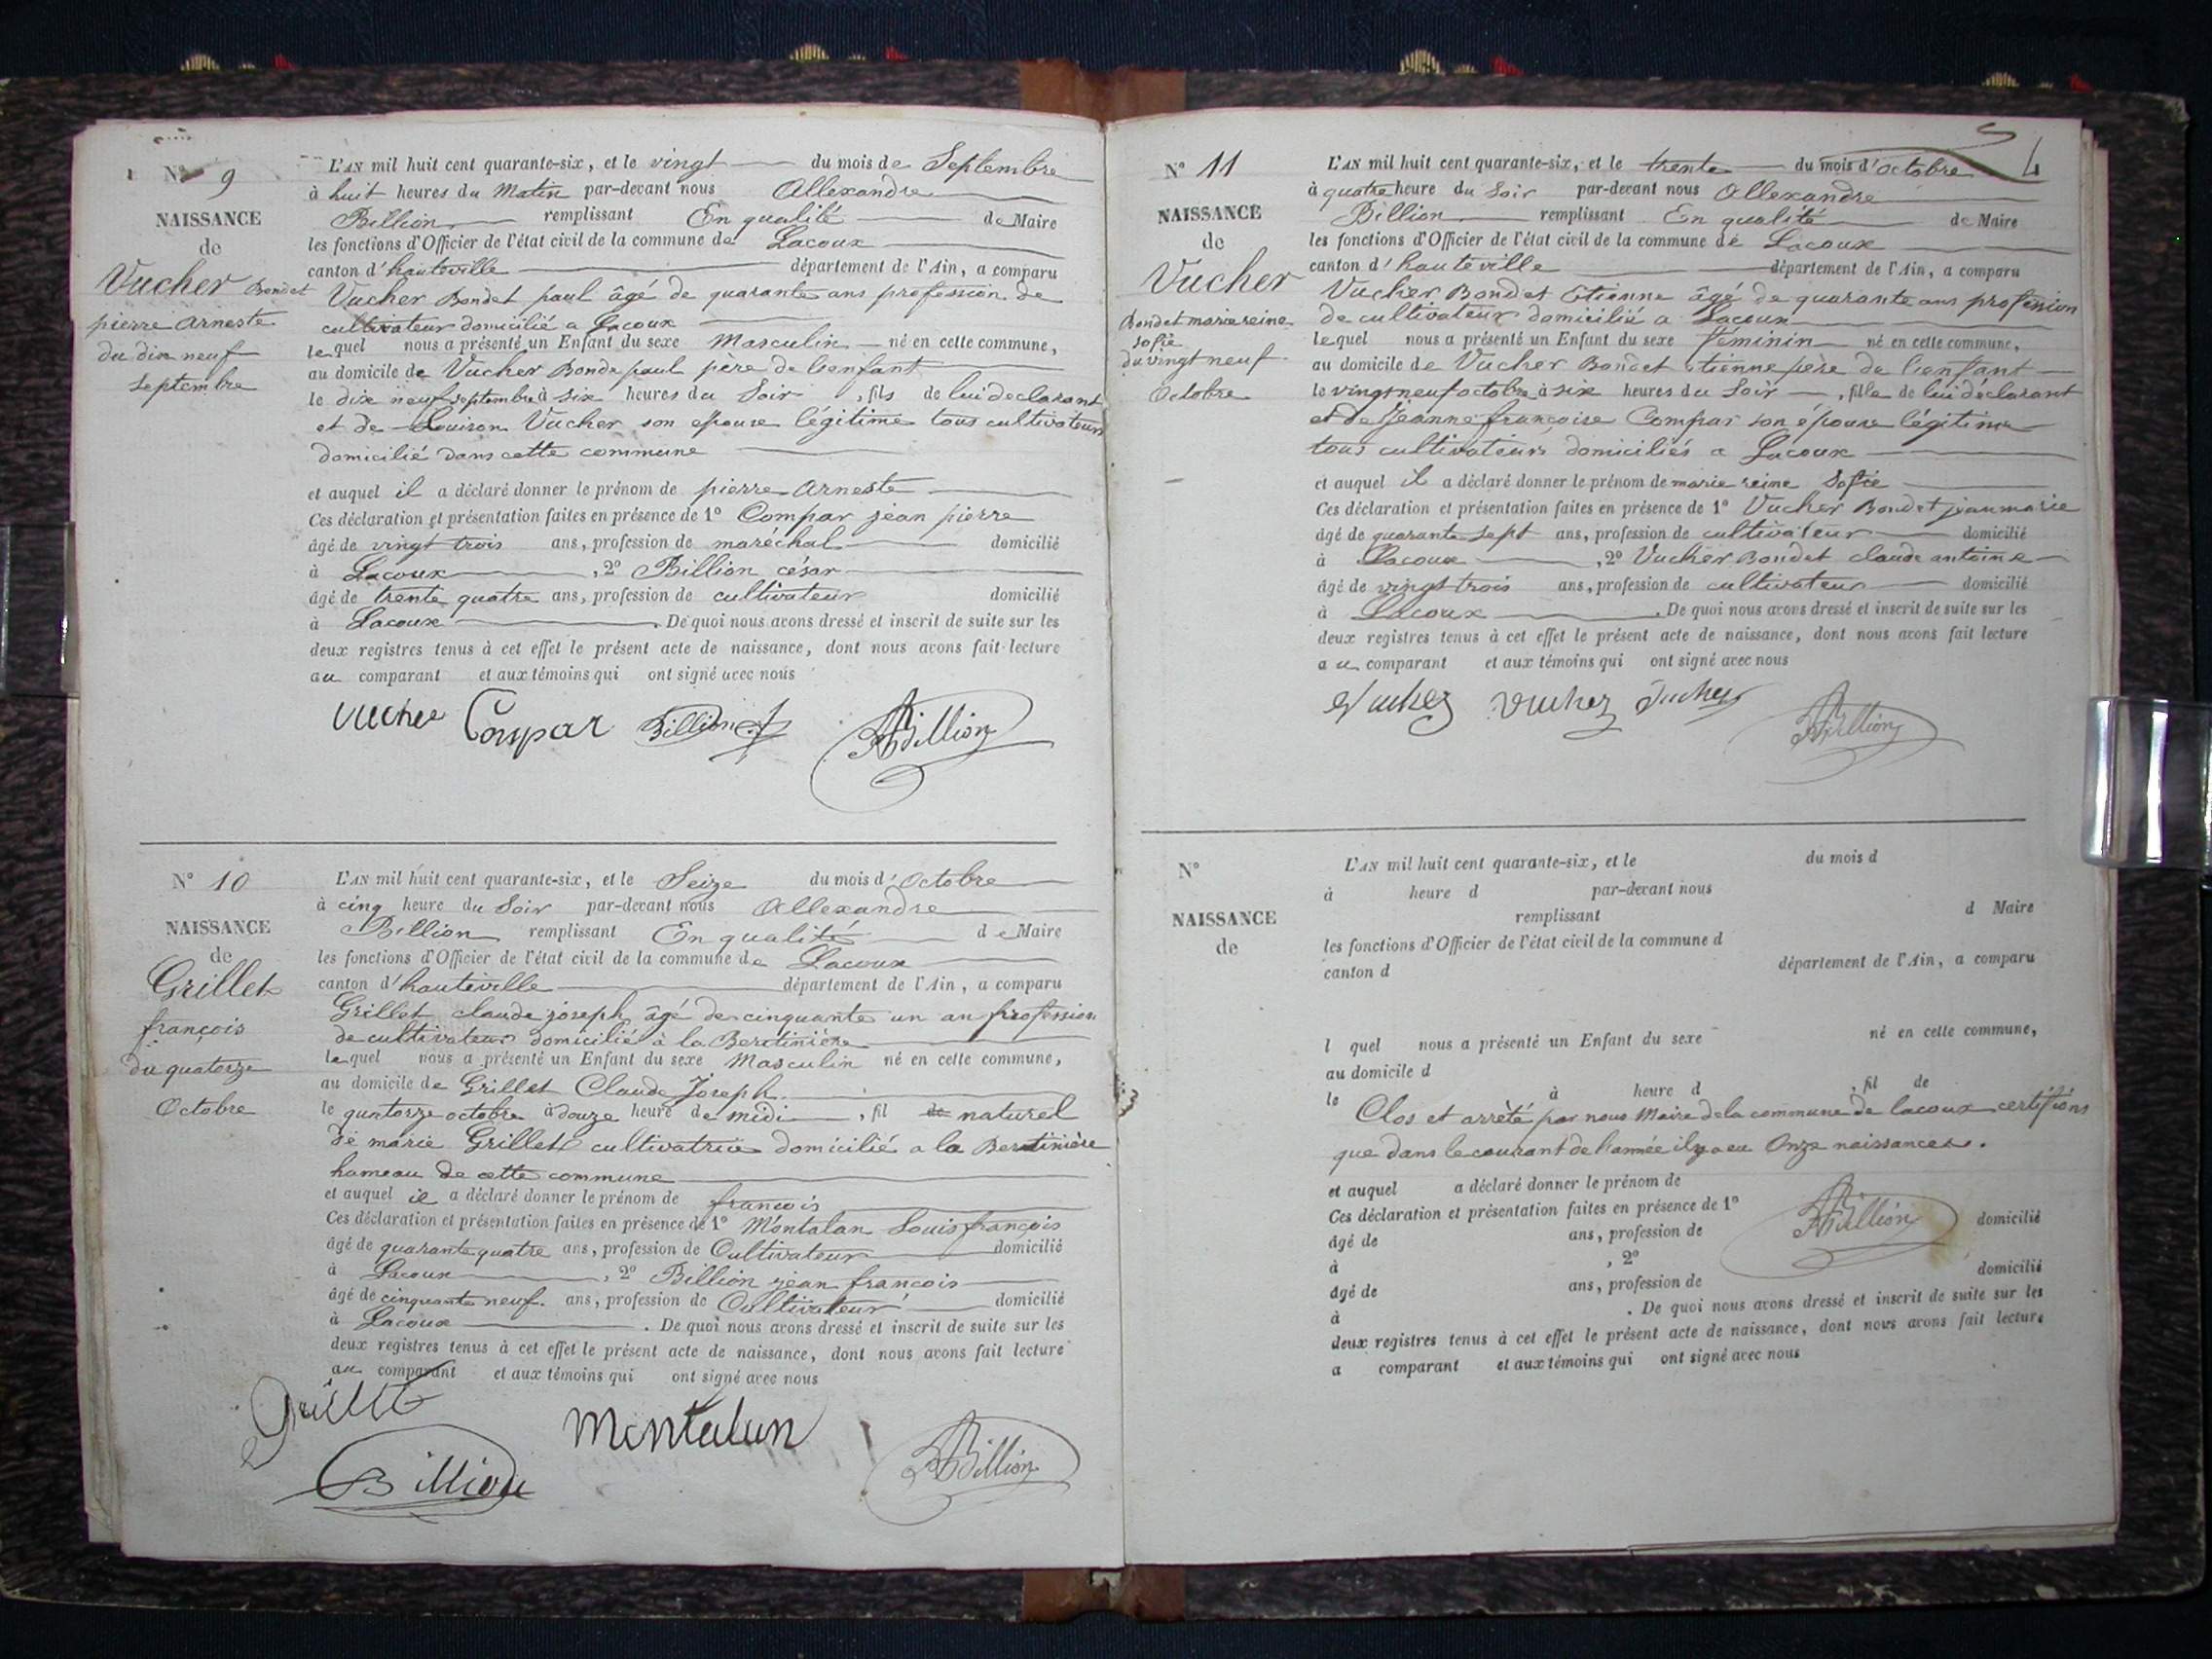 N° 9
NAISSANCE
de
Vucher Bondet
pierre Arneste
du dix neuf
Septembre
L'AN mil huit cent quarante-six, et le vingt du mois de Septembre
à huit heures du Matin par-devant nous Allexandre
Billion remplissant En qualité de Maire
les fonctions d'Officier de l'état civil de la commune de Lacoux
canton d'hauteville département de l'Ain, a comparu
Vucher Bondet paul âgé de quarante ans profession de
cultivateur domicilié a Lacoux
lequel nous a présenté un Enfant du sexe Masculin né en cette commune,
au domicile de Vucher Bonde paul père de l'enfant
le dix neuf septembre à six heures du Soir, fils de lui déclarant
et de Louison Vucher son epouse légitime tous cultivateurs
domicilié dans cette commune
et auquel il a déclaré donner le prénom de pierre Arneste
Ces déclaration et présentation faites en présence de 1° Compar jean pierre
âgé de vingt trois ans, profession de maréchal domicilié
à Lacoux, 2° Billion césar
âgé de trente quatre ans, profession de cultivateur domicilié
à Lacoux. De quoi nous avons dressé et inscrit de suite sur les
deux registres tenus à cet effet le présent acte de naissance, dont nous avons fait lecture
au comparant et aux témoins qui ont signé avec nous
Vucher Compar Billion ABillion
N° 10
NAISSANCE
de
Grillet
françois
du quatorze
Octobre
L'AN mil huit cent quarante-six, et le Seize du mois d'Octobre
à cinq heure du Soir par-devant nous Allexandre
Billion remplissant En qualité de Maire
les fonctions d'Officier de l'état civil de la commune de Lacoux
canton d'hauteville département de l'Ain, a comparu
Grillet claude joseph âgé de cinquante un an profession
de cultivateur domicilié à la Bertinière
lequel nous a présenté un Enfant du sexe Masculin né en cette commune,
au domicile de Grillet Claude Joseph
le quatorze octobre à douze heure de midi, fil de naturel
de marie Grillet cultivatrice domicilié a la Bertinière
hameau de cette commune
et auquel il a déclaré donner le prénom de françois
Ces déclaration et présentation faites en présence de 1° Montalan Louis françois
âgé de quarante quatre ans, profession de Cultivateur domicilié
à Lacoux, 2° Billion jean françois
âgé de cinquante neuf. ans, profession de Cultivateur domicilié
à Lacoux. De quoi nous avons dressé et inscrit de suite sur les
deux registres tenus à cet effet le présent acte de naissance, dont nous avons fait lecture
au comparant et aux témoins qui ont signé avec nous
Grillet Montalan
Billion ABillion
4
N° 11
NAISSANCE
de
Vucher
Bondet marie reine
Sofie
du vingt neuf
Octobre
L'AN mil huit cent quarante-six, et le trente du mois d'octobre
à quatre heure du Soir par-devant nous Allexandre
Billion remplissant En qualité de Maire
les fonctions d'Officier de l'état civil de la commune de Lacoux
canton d'hauteville département de l'Ain, a comparu
Vucher Bondet Etienne âgé de quarante ans profession
de cultivateur domicilié a Lacoux
lequel nous a présenté un Enfant du sexe féminin né en cette commune,
au domicile de Vucher Bondet etienne père de l'enfant
le vingt neuf octobre à six heures du Soir, fille de lui déclarant
et de Jeanne françoise Compar son épouse légitime
tous cultivateurs domiciliés a Lacoux
et auquel il a déclaré donner le prénom de marie reine Sofie
Ces déclaration et présentation faites en présence de 1° Vucher Bondet jean marie
âgé de quarante sept ans, profession de cultivateur domicilié
à Lacoux, 2° Vucher Bondet claude antoine
âgé de vingt trois ans, profession de cultivateur domicilié
à Lacoux. De quoi nous avons dressé et inscrit de suite sur les
deux registres tenus à cet effet le présent acte de naissance, dont nous avons fait lecture
au comparant et aux témoins qui ont signé avec nous
Vucher Vucher Vucher ABillion
N°
NAISSANCE
de
L'AN mil huit cent quarante-six, et le du mois d
à heure d par-devant nous
remplissant d Maire
les fonctions d'Officier de l'état civil de la commune d
canton d département de l'Ain, a comparu
l quel nous a présenté un Enfant du sexe né en cette commune,
au domicile d
le à heure d, fil de
Clos et arrêté par nous Maire de la commune de lacoux certifions
que dans le courant de l'année il y a eu Onze naissances.
et auquel a déclaré donner le prénom de
Ces déclaration et présentation faites en présence de 1°
ABillion
âgé de ans, profession de domicilié
à, 2°
âgé de ans, profession de domicilié
à. De quoi nous avons dressé et inscrit de suite sur les
deux registres tenus à cet effet le présent acte de naissance, dont nous avons fait lecture
a comparant et aux témoins qui ont signé avec nous